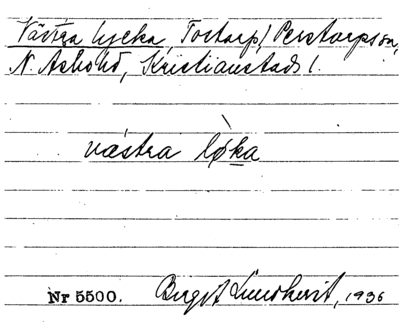 Västra lycka, Tostarp, Perstorpson,
N. Åsbohd, Kristianstads l.
västra lỳka
Nr 5500. Birgit Lundkvist, 1936